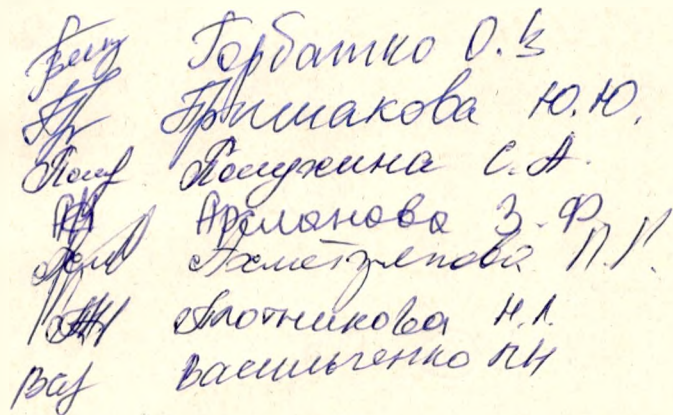 Горбатко О.В
Пришакова Ю.Ю.
Полухина С.А.
Арсланова З.Ф
Ахметзянова П.Г.
Плотникова Н.Л.
Вас Васильченко ПН